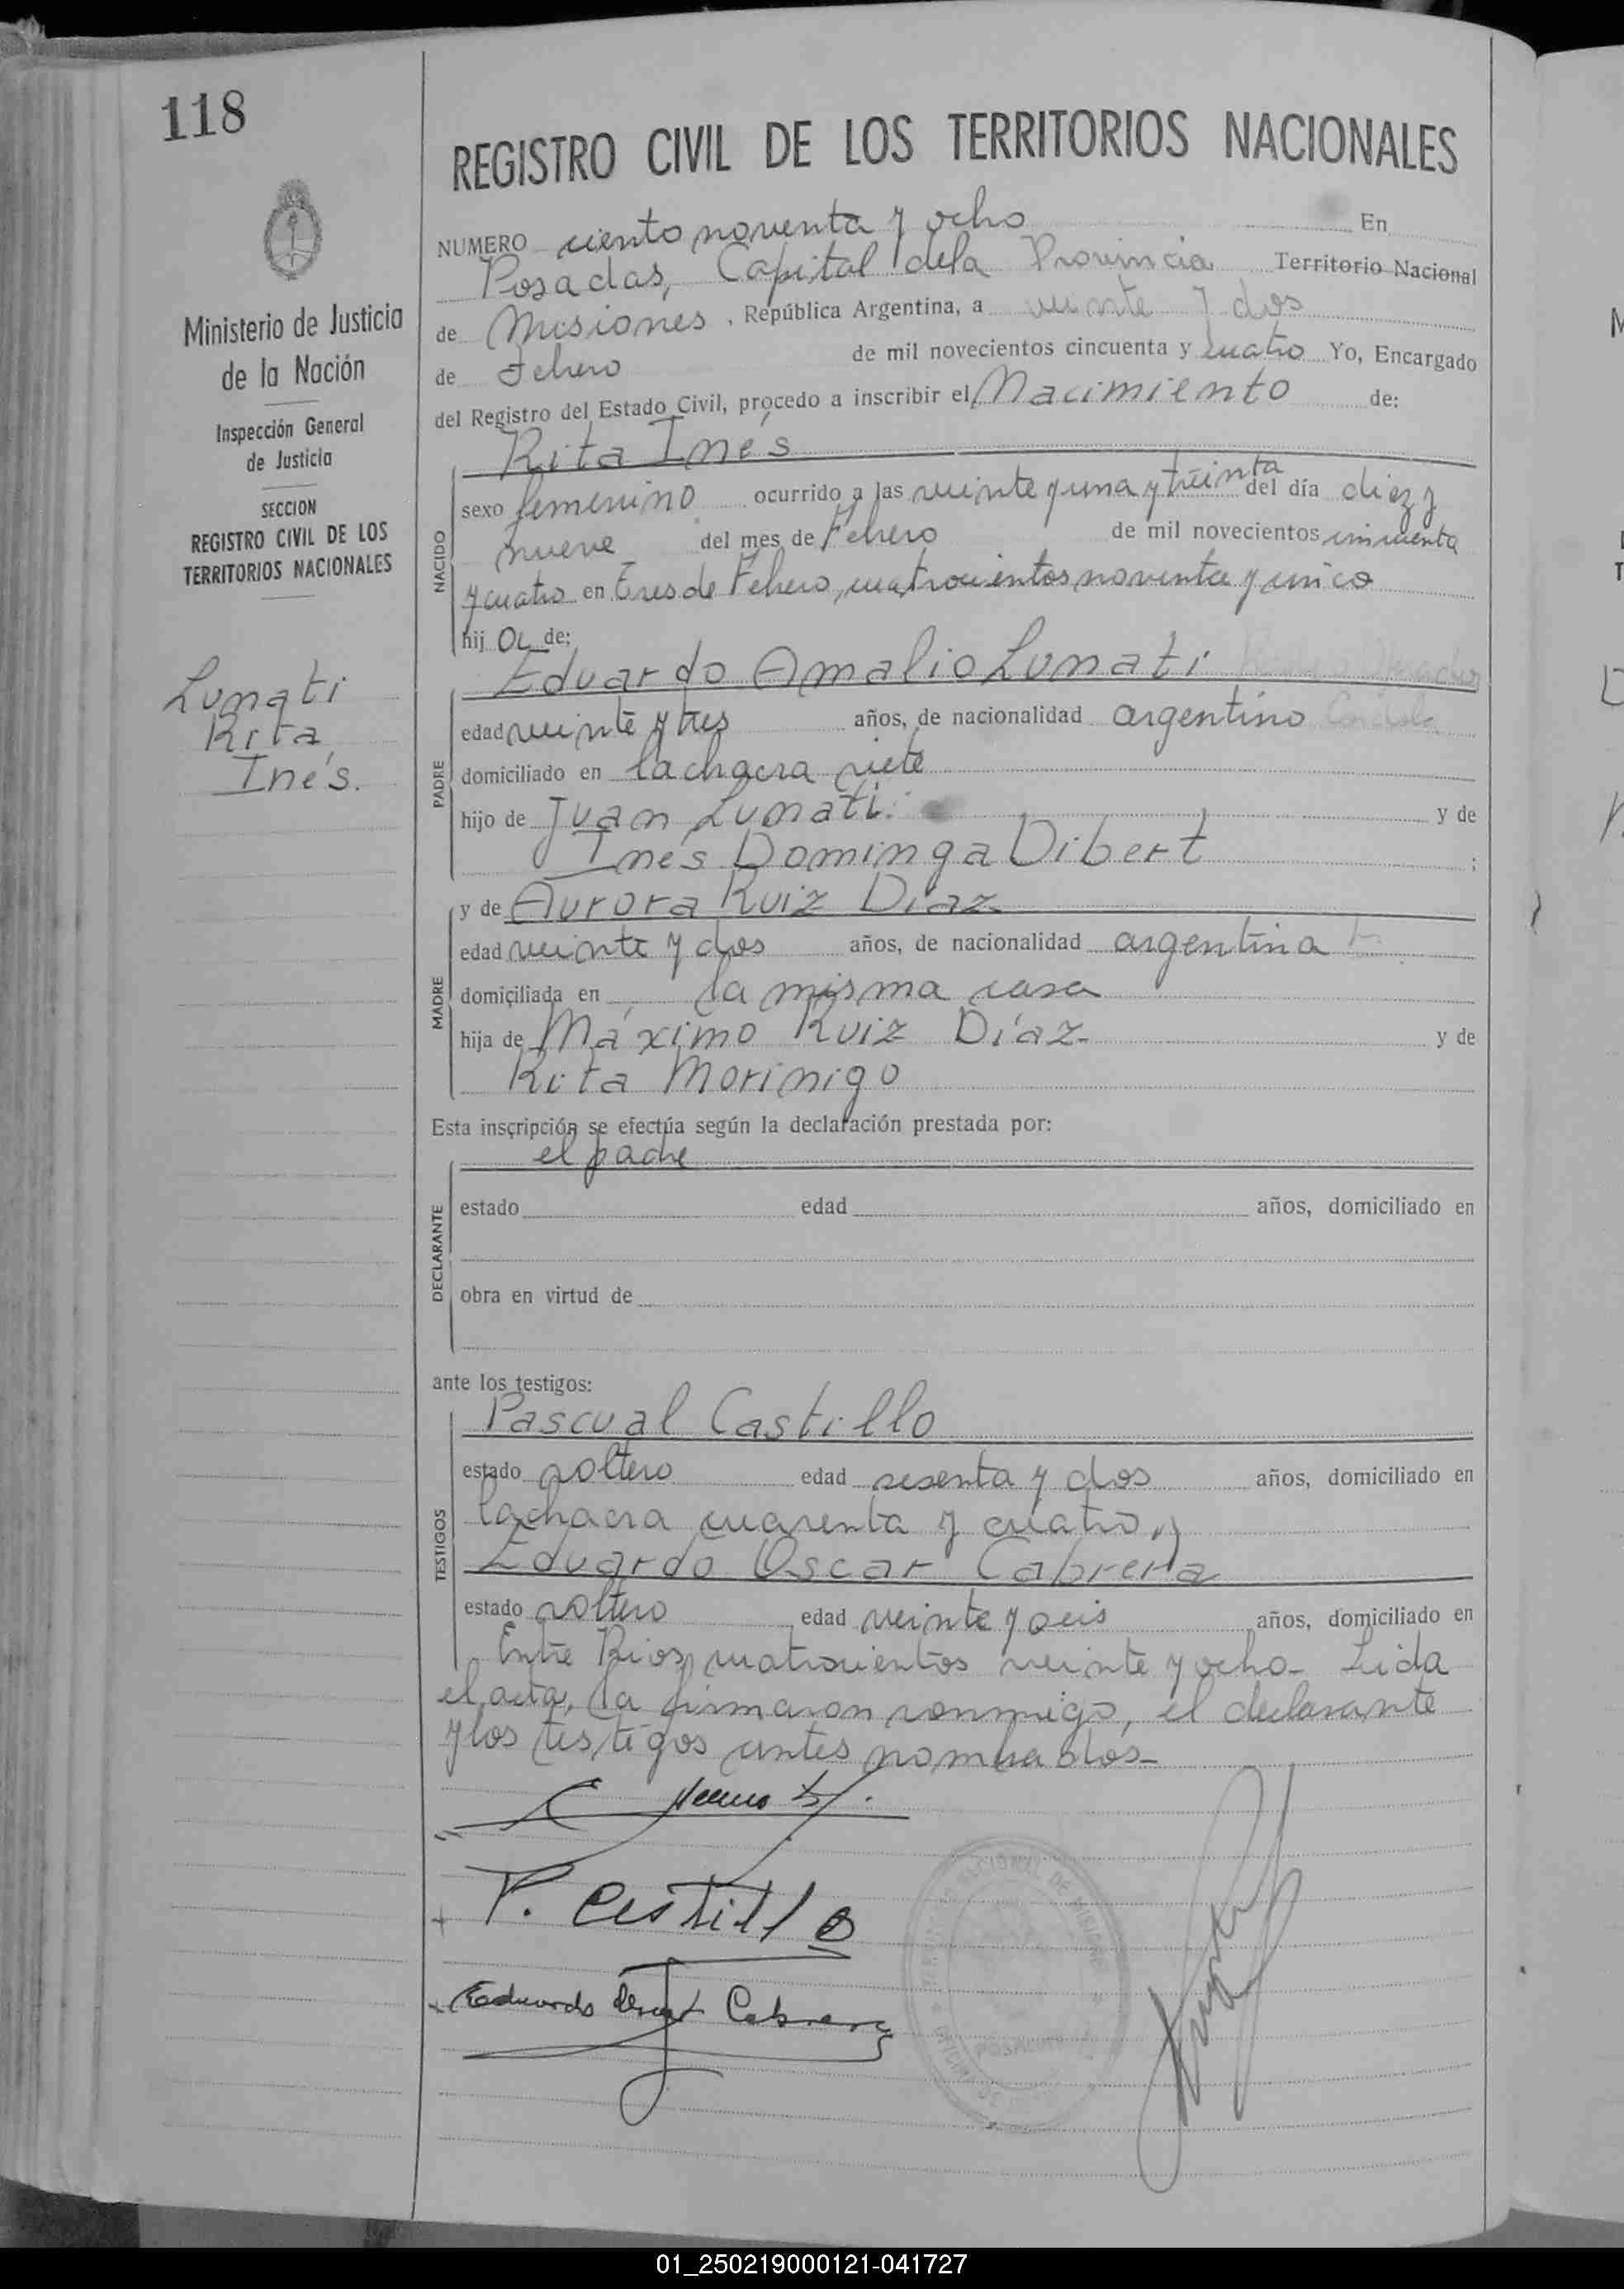 118
REGISTRO CIVIL DE LOS TERRITORIOS NACIONALES
Ministerio de Justicia
de la Nación
Inspección General
de Justicia
SECCION
REGISTRO CIVIL DE LOS
TERRITORIOS NACIONALES
Lunati
Rita
Inés.
NUMERO ciento noventa y ocho En
Posadas, Capital de la Provincia Territorio Nacional
de Misiones, República Argentina, a veinte y dos
de Febrero de mil novecientos cincuenta y cuatro Yo, Encargado
del Registro del Estado Civil, procedo a inscribir el Nacimiento de:
NACIDO
Rita Inés
sexo femenino ocurrido a las veinte y una y treinta del día diez y
nueve del mes de Febrero de mil novecientos cincuenta
y cuatro en tres de Febrero, cuatrocientos noventa y cinco
hija de:
PADRE
Eduardo Amalio Lunati
edad veinte y tres años, de nacionalidad argentino
domiciliado en la chacra siete
hijo de Juan Lunati. y de
Inés Dominga Dibert ;
MADRE
y de Aurora Ruiz Díaz
edad veinte y dos años, de nacionalidad argentina
domiciliada en la misma casa
hija de Máximo Ruiz Díaz- y de
Rita Morinigo
Esta inscripción se efectúa según la declaración prestada por:
el padre
DECLARANTE
estado edad años, domiciliado en
obra en virtud de
ante los testigos:
TESTIGOS
Pascual Castillo
estado soltero edad sesenta y dos años, domiciliado en
la chacra cuarenta y cuatro, y
Eduardo Oscar Cabrera
estado soltero edad veinte y seis años, domiciliado en
Entre Rios, cuatrocientos veinte y ocho- Leida
el acta, la firmaron conmigo, el declarante
y los testigos antes nombrados-
P. Castillo
Eduardo Oscar Cabrera
POSADAS
01_250219000121-041727